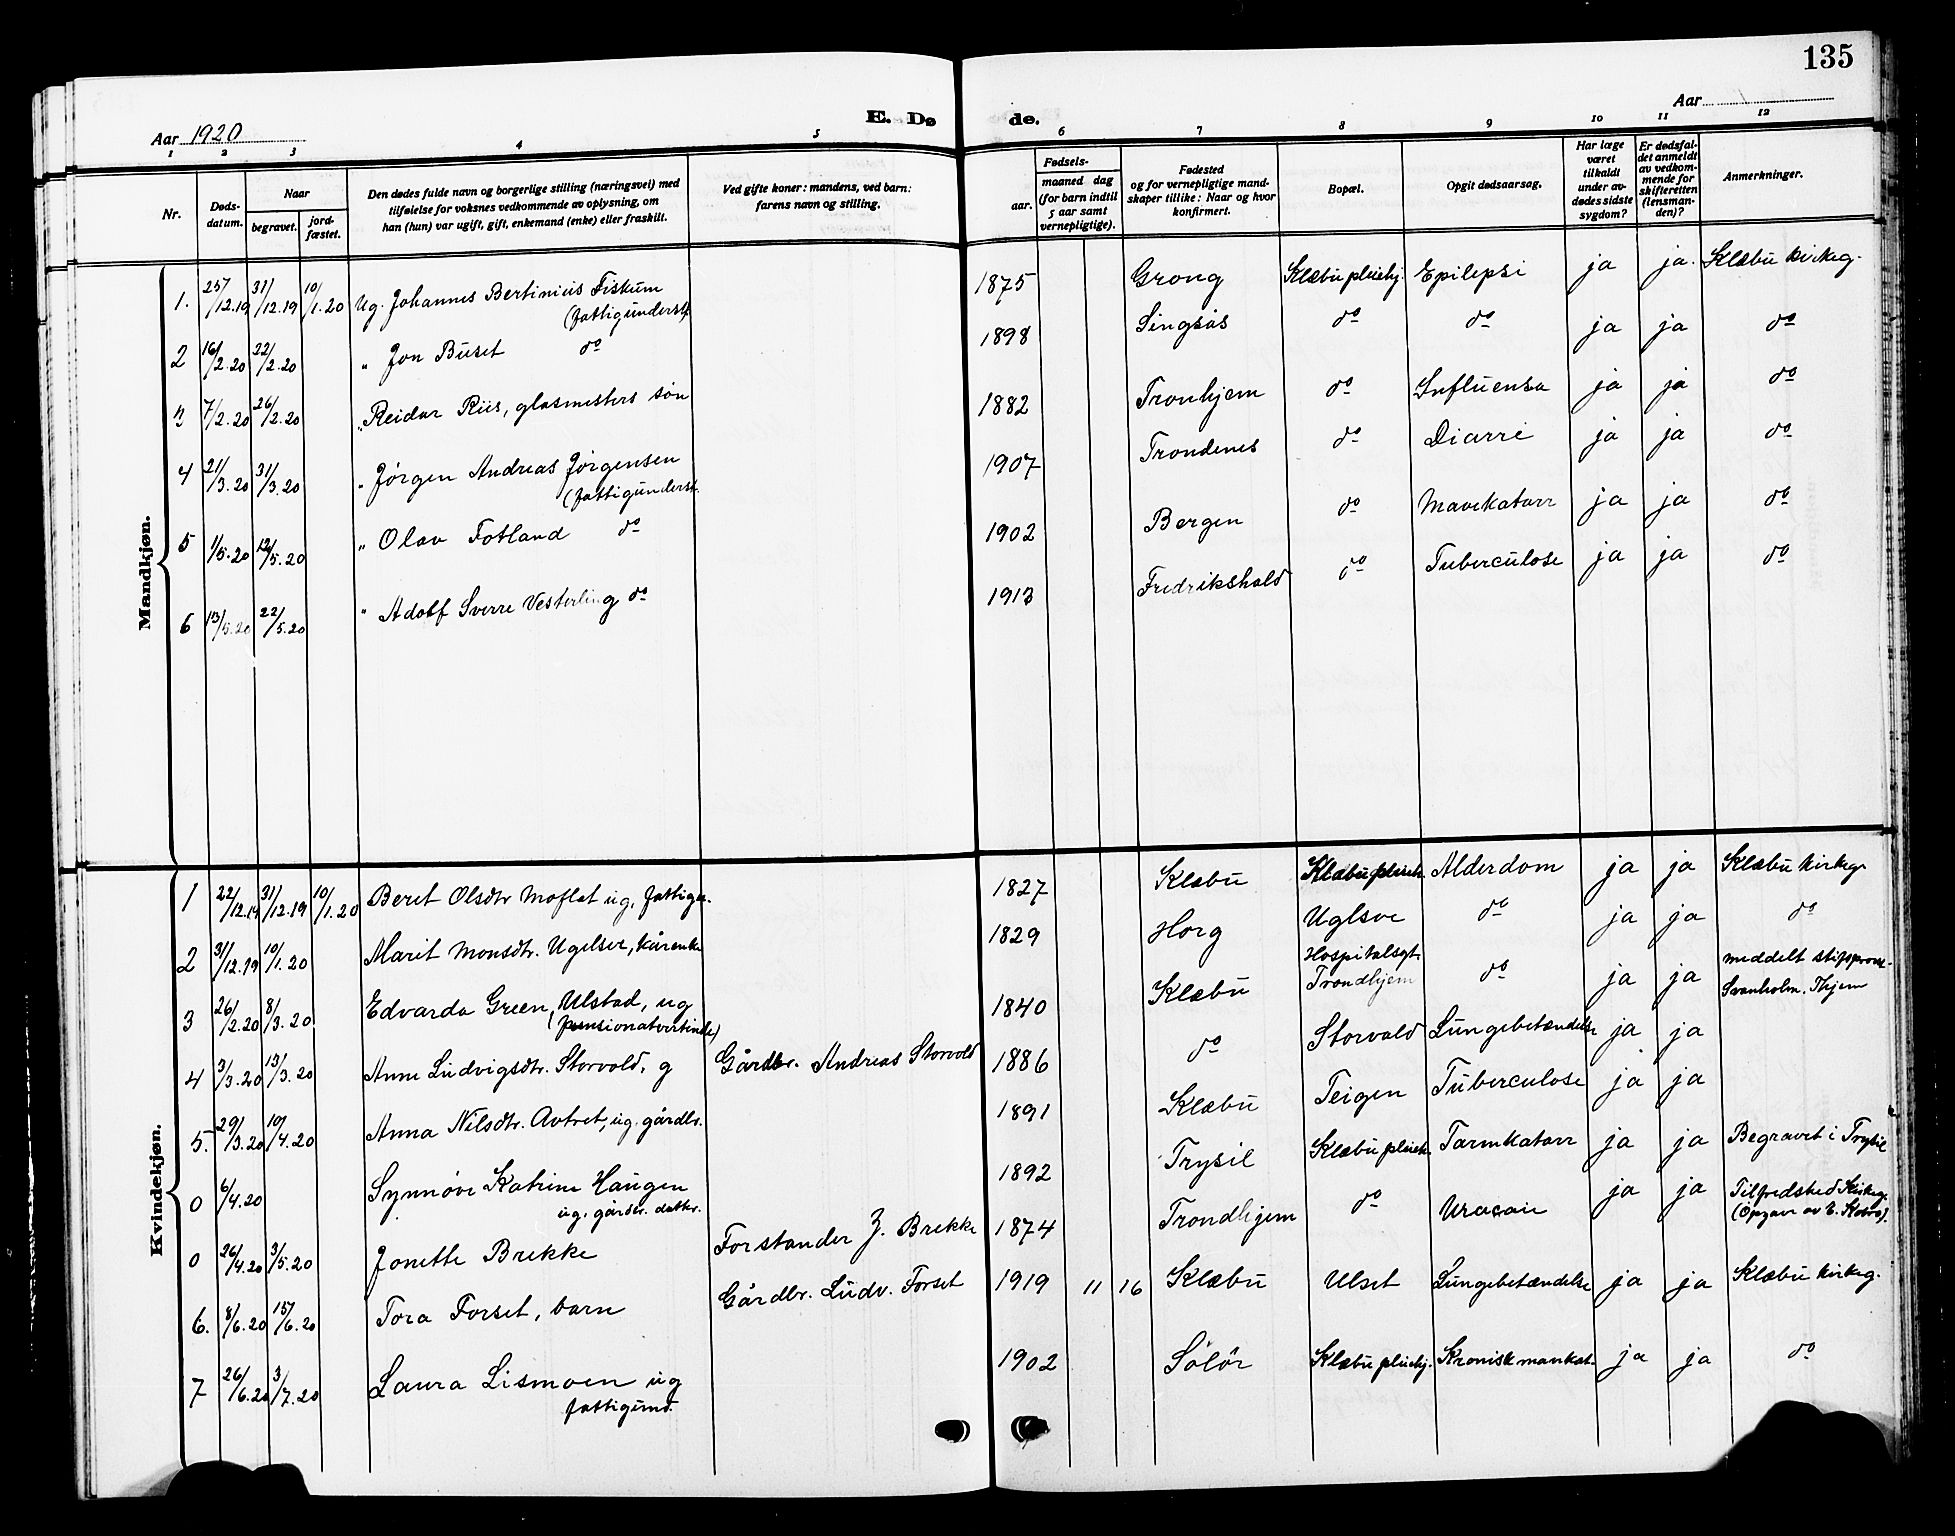 135
Aar 1920
E. Dø
de.
Aar
1 2 3 4 5 6 7 8 9 10 11 12
Nr.
Døds-
datum.
Naar
begravet.
jord-
fæstet.
Den dødes fulde navn og borgerlige stilling (næringsvei) med
tilføielse for voksnes vedkommende av oplysning, om
han (hun) var ugift, gift, enkemand (enke) eller fraskilt.
Ved gifte koner: mandens, ved barn:
farens navn og stilling.
Fødsels-
aar.
maaned dag
(for barn indtil
5 aar samt
vernepligtige).
Fødested
og for vernepligtige mand-
skaper tillike: Naar og hvor
konfirmert.
Bopæl.
Opgit dødsaarsag.
Har læge
været
tilkaldt
under av-
dødes sidste
sygdom?
Er dødsfal-
det anmeldt
av vedkom-
mende for
skifteretten
(lensman-
den)?
Anmerkninger.
Mandkjøn.
1. 25/12.19 31/12.19 10/1.20 Ug. Johannes Bertinius Fiskum 1875 Grong Klæbu pleiehj. Epilepsi ja ja. Klæbu kirkeg.
(fattigunderst.
2 16/2.20 22/2.20 " Jon Buset do 1898 Singsås do do ja ja do
3 7/2.20 26/2.20 " Reidar Riis, glasmesters søn 1882 Tronhjem do Influensa ja ja do
4 21/3.20 31/3.20 " Jørgen Andreas Jørgensen 1907 Trondenes do Diarré ja ja do
(fattigunderst.
5 1/5.20 12/5.20 " Olav Fotland do 1902 Bergen do Mavekatarr ja ja do
6 13/5.20 22/5.20 " Adolf Sverre Vesterling do 1913 Fredrikshald do Tuberculose ja ja do
Kvindekjøn.
1 22/12.19 31/12.19 10/1.20 Beret Olsdtr Moflat ug, fattigu. 1827 Klæbu Klæbu pleieh. Alderdom ja ja Klæbu kirkeg
2 31/12.19 10/1.20 Marit Monsdtr. Ugelser, kårenke 1829 Horg Uglsve do ja ja do
3 26/2.20 8/3.20 Edvarda Green, Ulstad, ug 1840 Klæbu Hospitalsgt. Trondhjem do ja ja meddelt stifsprovst
(pensionatvertinde) Svanholm, Thjem
4 3/3.20 13/3.20 Anne Ludvigsdtr. Storvold, g Gårdbr. Andreas Storvold 1886 do Storvold Lungebetændelse ja ja
5. 29/3.20 10/4.20 Anna Nilsdtr. Avtret, ug. gårdbr. 1891 Klæbu Teigen Tuberculose ja ja
0 6/4.20 Synnøve Katrine Haugen 1892 Trysil Klæbu pleieh. Tarmkatarr ja ja Begravet i Trysil
ug. gårdbr. datter.
0 26/4.20 3/5.20 Jonette Brekke Forstander J. Brekke 1874 Trondhjem do ja ja Tilfredshed Kirkeg.
6. 8/6.20 15/6.20 Tora Forset, barn Gårdbr. Ludv. Forset 1919 11 16 Klæbu Ulset Lungebetændelse ja ja Klæbu kirkeg.
7 26/6.20 3/7.20 Laura Lismoen ug 1902 Sólór Klæbu pleiehj. Kronisk mavkat. ja ja do
fattigund.